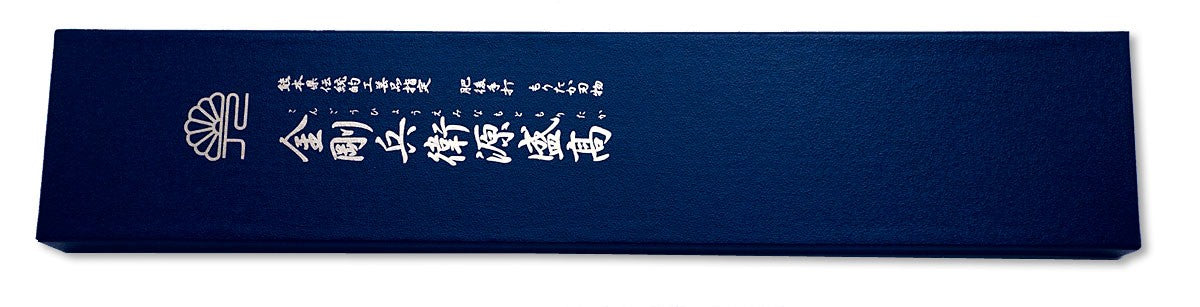 熊本県伝統的工芸品指定 肥後手打 もりたか刃物
こんごうひょうえみなもともりたか
金剛兵衛源盛高